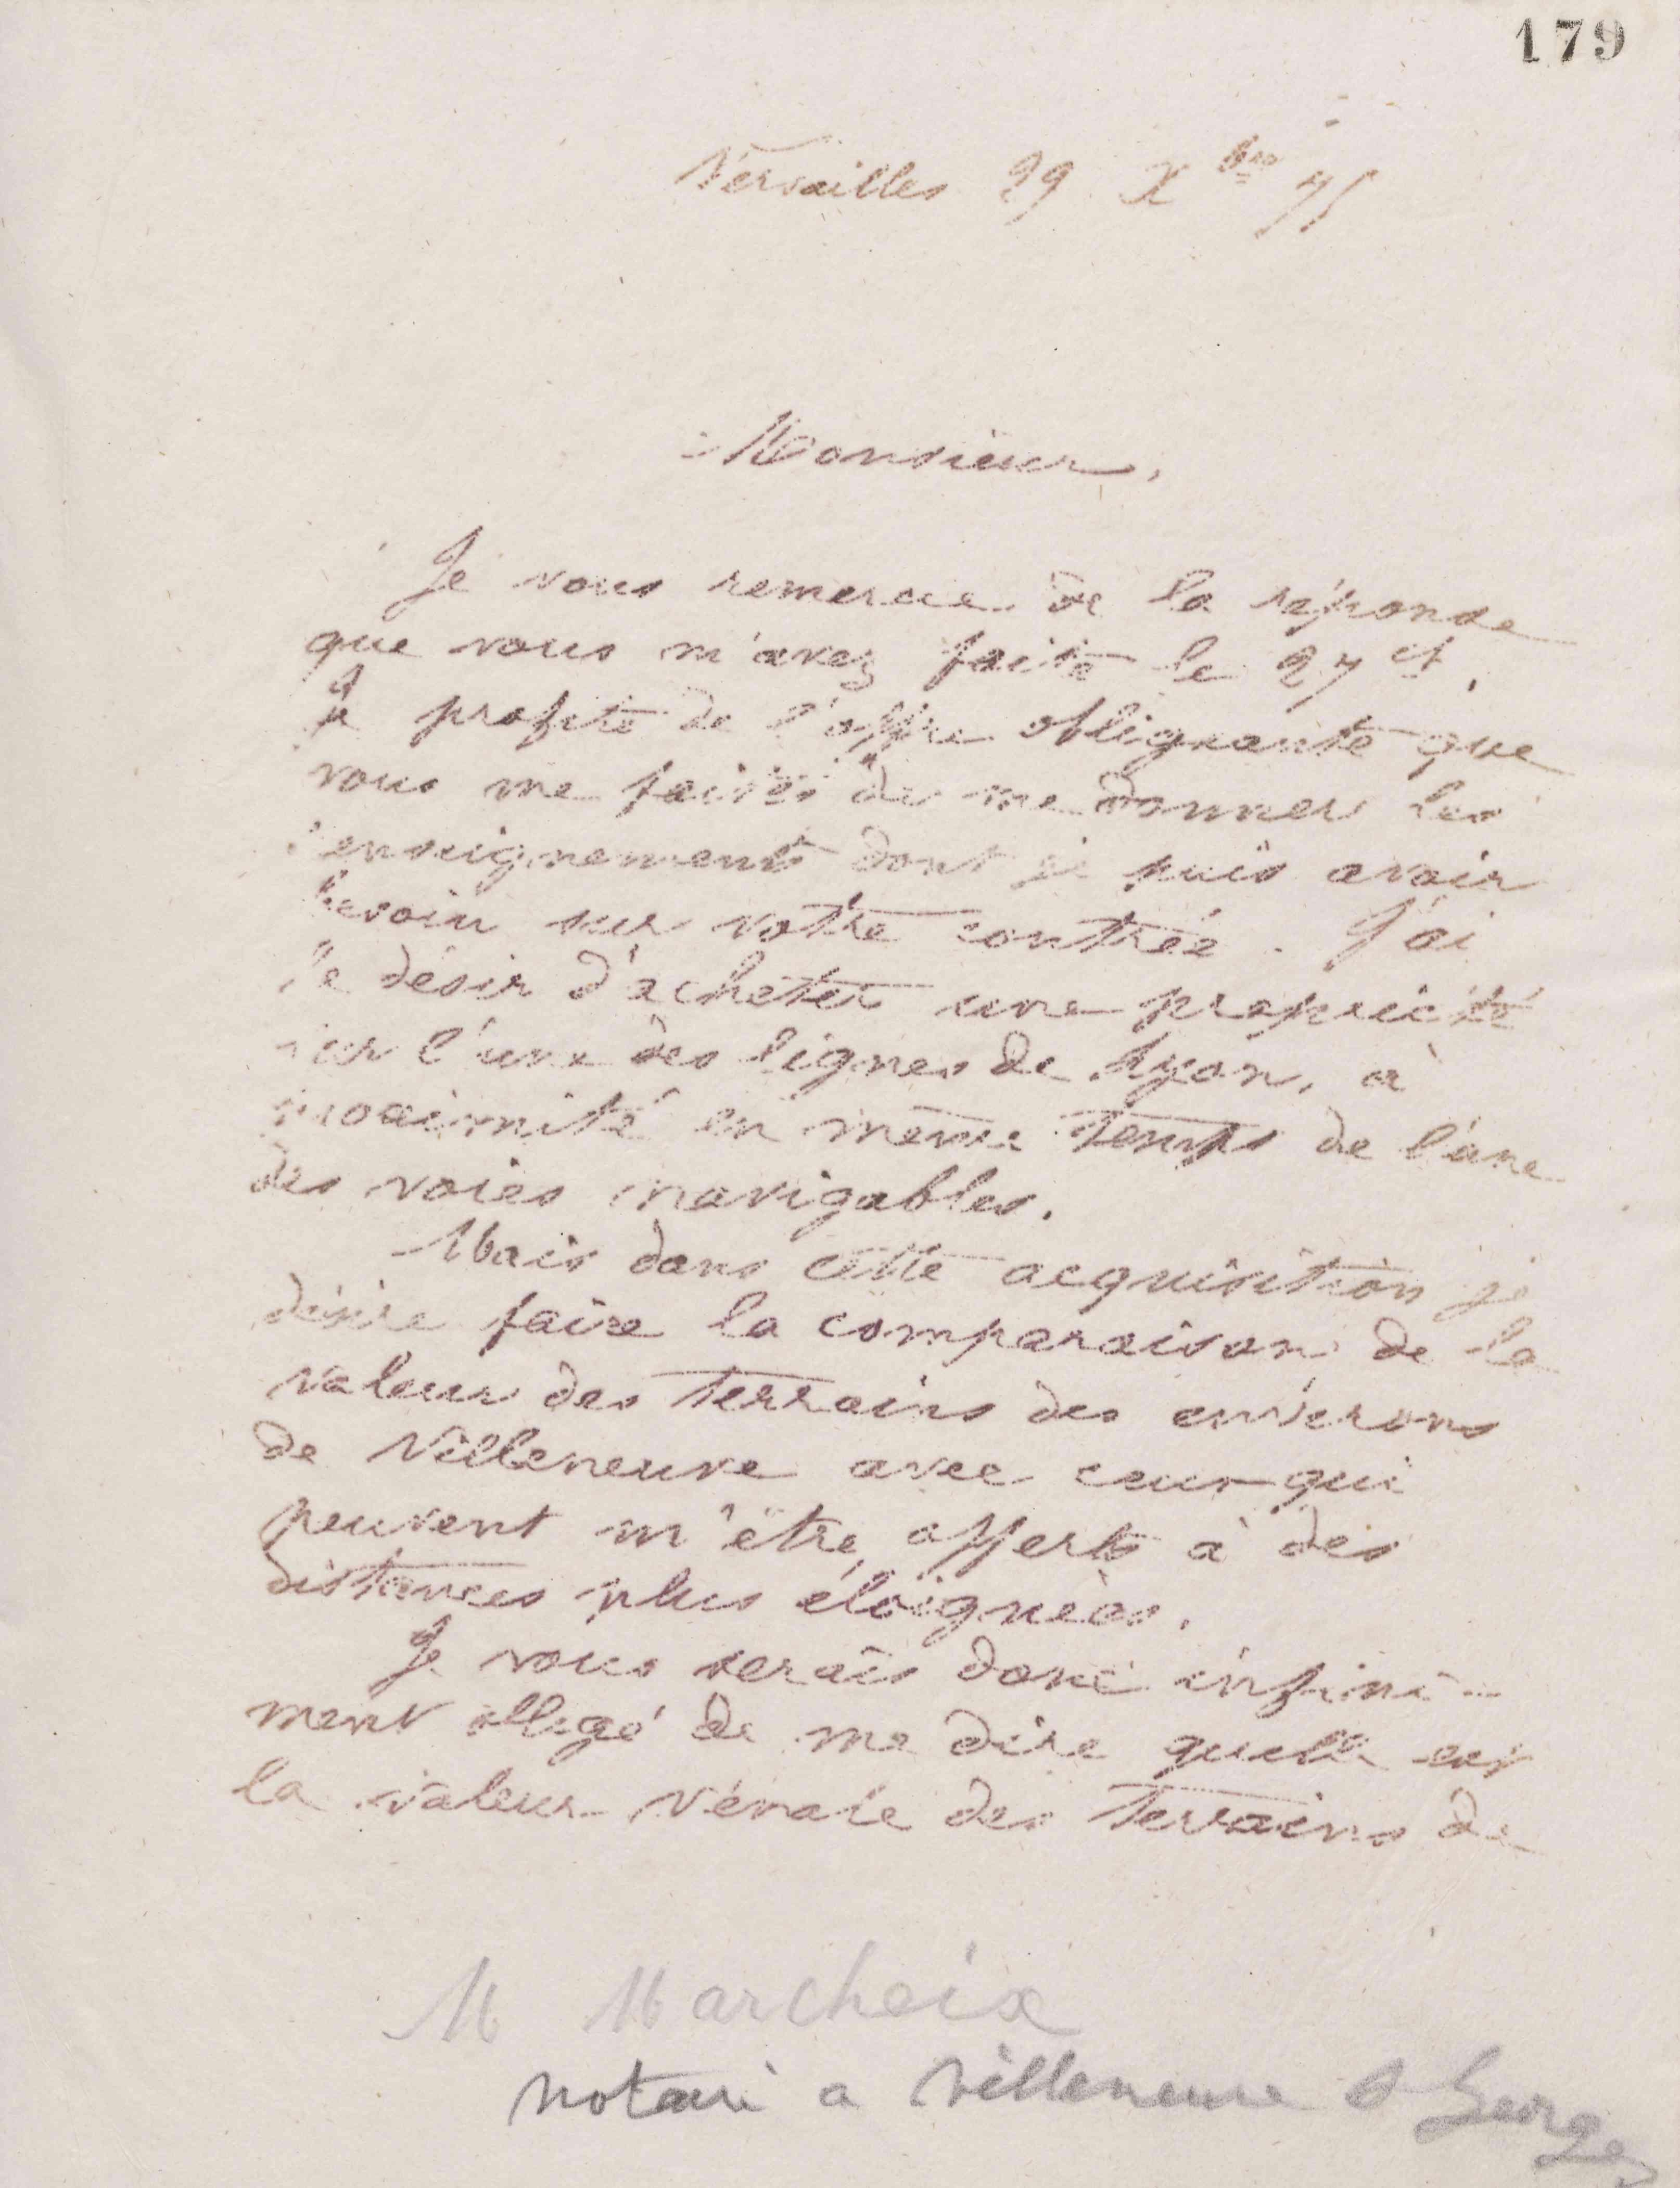 179
Versailles 29 Xbre 75
Monsieur,
Je vous remercie de la réponse
que vous m'avez faite le 27 ct.
Je profite de l'offre obligeante que
vous me faites de me donner les
renseignements dont je puis avoir
besoin sur votre contrée. J'ai
le désir d'acheter une propriété
sur l'une des lignes de Lyon, à
proximité en même temps de l'une
des voies navigables.
Mais dans cette acquisition je
désire faire la comparaison de la
valeur des terrains des environs
de Villeneuve avec ceux qui
peuvent m'être offerts à des
distances plus éloignées.
Je vous serais donc infini-
ment obligé de me dire quelle est
la valeur vénale des terrains de
M Marcheix
notaire a Villeneuve St Georges